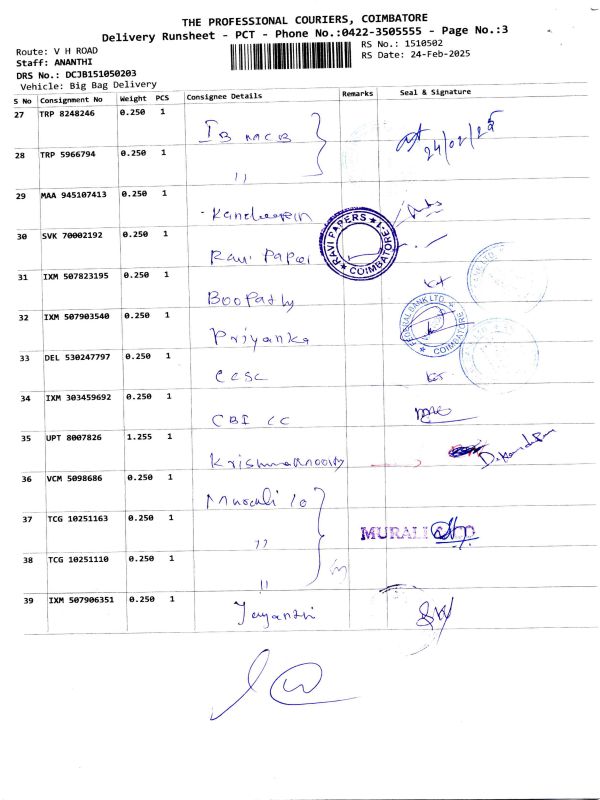 THE PROFESSIONAL COURIERS, COIMBATORE
Delivery Runsheet - PCT - Phone No.:0422-3505555 - Page No.:3
Route: V H ROAD
RS No.: 1510502
Staff: ANANTHI
RS Date: 24-Feb-2025
DRS No.: DCJB151050203
Vehicle: Big Bag Delivery
S No Consignment No Weight PCS Consignee Details Remarks Seal & Signature
27 TRP 8248246 0.250 1
24/02/25
28 TRP 5966794 0.250 1 ,,
29 MAA 945107413 0.250 1
30 SVK 70002192 0.250 1 Ravi Paper
RAVI PAPERS
COIMBATORE-1
31 IXM 507823195 0.250 1 Boopathy
32 IXM 507903540 0.250 1 Priyanka
FEDERAL BANK LTD.
COIMBATORE
33 DEL 530247797 0.250 1 CCSC
34 IXM 303459692 0.250 1 CBI CC
35 UPT 8007826 1.255 1 Krishnamoorthy
36 VCM 5098686 0.250 1 Murali
37 TCG 10251163 0.250 1 ,,
MURALI & CO
38 TCG 10251110 0.250 1 ,,
39 IXM 507906351 0.250 1 Jayanthi